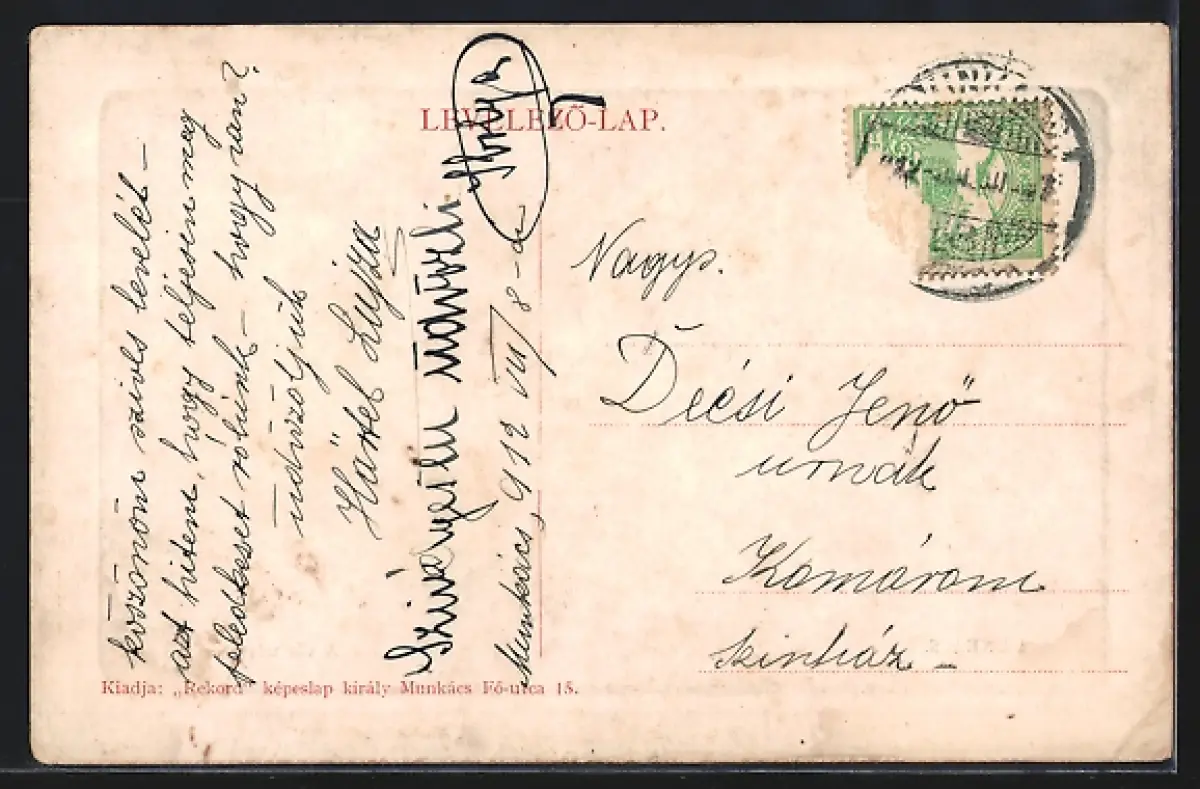 LEVELEZŐ-LAP.
köszönöm szives levelét –
azt hitem, hogy teljesen meg
feledkezet rólunk – hogy van?
üdvözöljük
Härtel Lujza
Munkács, 912 VIII/8-án
Nagys.
Décsi Jenő
urnak
Komárom
szinház –
Kiadja: „Rekord" képeslap király Munkács Fő-utca 15.